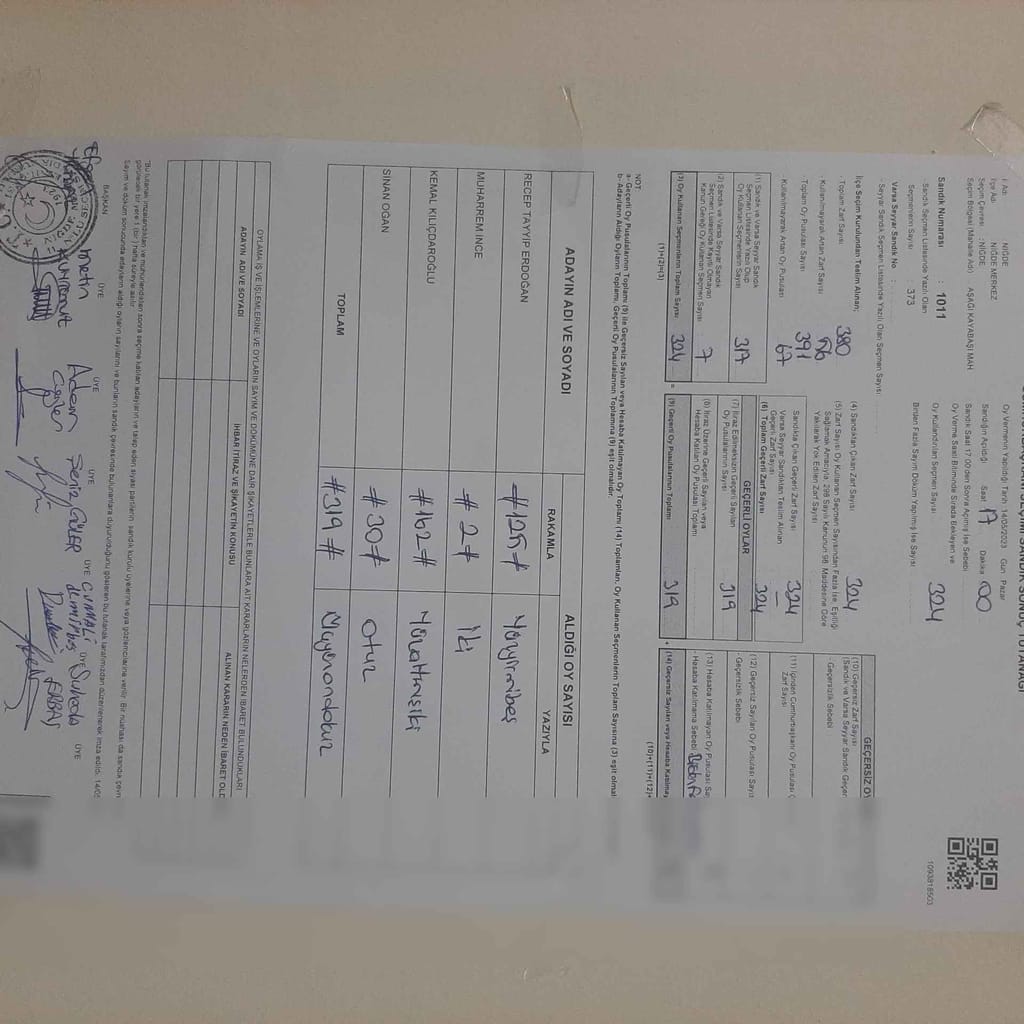 SANDIK SONUÇ TUTANAĞI
İl Adı: NİĞDE
İlçe Adı: NİĞDE MERKEZ
Seçim Çevresi : NİĞDE
Seçim Bölgesi (Mahalle Adı) : AŞAĞI KAYABAŞI MAH
Sandık Numarası : 1011
-Sandık Seçmen Listesinde Yazılı Olan
Seçmenlerin Sayısı : 373
Varsa Seyyar Sandık No :
-Seyyar Sandık Seçmen Listesinde Yazılı Olan Seçmen Sayısı
Oy Vermenin Yapıldığı Tarih 14/05/2023 Gün Pazar
Sandığın Açıldığı Saat 17 Dakika 00
Sandık Saat 17:00'den Sonra Açılmış İse Sebebi
Oy Verme Saati Bitiminde Sırada Bekleyen ve
Oy Kullandırılan Seçmen Sayısı 324
Birden Fazla Sayım Döküm Yapılmış İse Sayısı
1093818503
İlçe Seçim Kurulundan Teslim Alınan;
-Toplam Zarf Sayısı 380
-Kullanılmayarak Artan Zarf Sayısı
-Toplam Oy Pusulası Sayısı 391
-Kullanılmayarak Artan Oy Pusulası 67
(1) Sandık ve Varsa Seyyar Sandık
Seçmen Listesinde Yazılı Olup
Oy Kullanan Seçmenlerin Sayısı 317
(2) Sandık ve Varsa Seyyar Sandık
Seçmen Listesinde Kayıtlı Olmayan
Kanun Gereği Oy Kullanan Seçmen Sayısı 7
(3) Oy Kullanan Seçmenlerin Toplam Sayısı 324
(1)+(2)=(3)
(4) Sandıktan Çıkan Zarf Sayısı 324
(5) Zarf Sayısı Oy Kullanan Seçmen Sayısından Fazla İse, Eşitliği
Sağlamak Amacıyla, 298 Sayılı Kanunun 98. Maddesine Göre
Yakılarak Yok Edilen Zarf Sayısı
Sandıkta Çıkan Geçerli Zarf Sayısı 324
Varsa Seyyar Sandıktan Teslim Alınan
Geçerli Zarf Sayısı —
(6) Toplam Geçerli Zarf Sayısı 324
GEÇERLİ OYLAR
(7) İtiraz Edilmeksizin Geçerli Sayılan
Oy Pusulalarının Sayısı 319
(8) İtiraz Üzerine Geçerli Sayılan veya
Hesaba Katılan Oy Pusulası Toplamı
(9) Geçerli Oy Pusulalarının Toplamı 319
GEÇERSİZ
(10) Geçersiz Zarf Sayısı
(Sandık ve Varsa Seyyar Sandık
-Geçersizlik Sebebi
(11) İçinden Cumhurbaşkanı Oy Pusulası
Zarf Sayısı
(12) Geçersiz Sayılan Oy Pusulası
-Geçersizlik Sebebi :
(13) Hesaba Katılmayan Oy Pusulası
-Hesaba Katılmama Sebebi
(14) Geçersiz Sayılan veya Hesaba
(10)+(11)+(12)+
NOT
a- Geçerli Oy Pusulalarının Toplamı (9) ile Geçersiz Sayılan veya Hesaba Katılmayan Oy Toplamı (14) Toplamları, Oy Kullanan Seçmenlerin Toplam Sayısına (3) eşit
b- Adayların Aldığı Oyların Toplamı, Geçerli Oy Pusulalarının Toplamına (9) eşit olmalıdır.
ADAYIN ADI VE SOYADI ALDIĞI OY SAYISI
RAKAMLA YAZIYLA
RECEP TAYYİP ERDOĞAN #125# Yüzyirmibeş
MUHARREM İNCE # 2 # iki
KEMAL KILIÇDAROĞLU #162# Yüzaltmışiki
SİNAN OĞAN #30# otuz
TOPLAM #319# Üçyüzondokuz
OYLAMA İŞ VE İŞLEMLERİNE VE OYLARIN SAYIM VE DÖKÜMÜNE DAİR ŞİKAYETLERLE BUNLARA AİT KARARLARIN NELERDEN İBARET BULUNDUKLARI
ADAYIN ADI VE SOYADI İHBAR İTİRAZ VE ŞİKAYETİN KONUSU ALINAN KARARIN NEDEN İBARET
"Bu tutanak imzalandıktan ve mühürlendikten sonra seçime katılan adayların ve talep eden siyasi partilerin sandık kurulu üyelerine veya gözlemcilerine verilir. Bir nüshası da sandık
görülecek bir yere 1 (bir) hafta süreyle asılır.
Sayım ve döküm sonucunda adayların aldığı oyların sayılarını ve bunların sandık çevresinde bulunanlara duyurulduğunu gösteren bu tutanak tarafımızdan düzenlenerek imza edildi.
BAŞKAN ÜYE ÜYE ÜYE ÜYE ÜYE ÜYE
Metin Adem